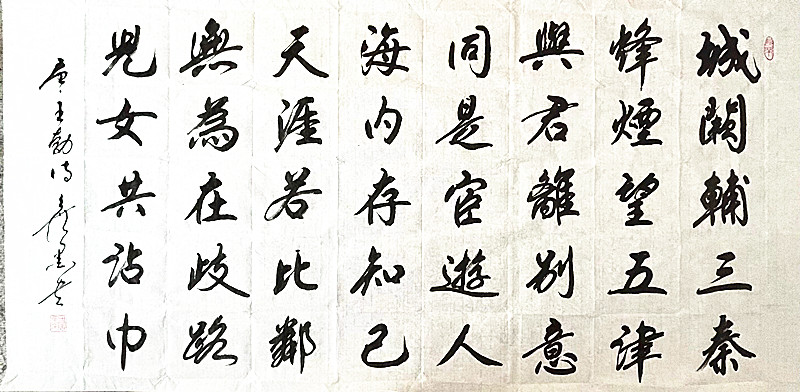 城闕輔三秦
烽煙望五津
與君離別意
同是宦遊人
海内存知己
天涯若比鄰
無為在歧路
兒女共沾巾
唐王勃诗